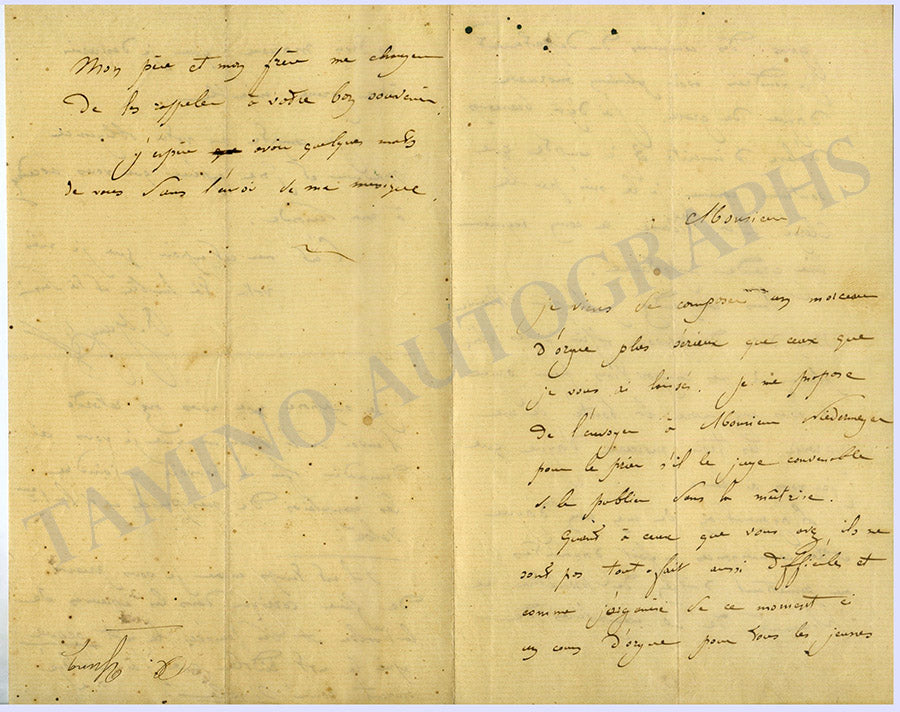 Monsieur
je viens de composer un morceau
d'orgue plus sérieux que ceux que
je vous ai laissés. Je me propose
de l'envoyer à Monsieur Niedermeyer
pour le prier s'il le juge convenable
de le publier dans la maîtrise.
Quant à ceux que vous avez, ils ne
sont pas tout à fait aussi difficiles et
comme j'organise de ce moment ci
un cours d'orgue pour tous les jeunes
Mon père et mon frère me chargent
de les rappeler à votre bon souvenir.
j'espère avoir quelques mots
de vous dans l'envoi de ma musique.
TAMINO AUTOGRAPHS